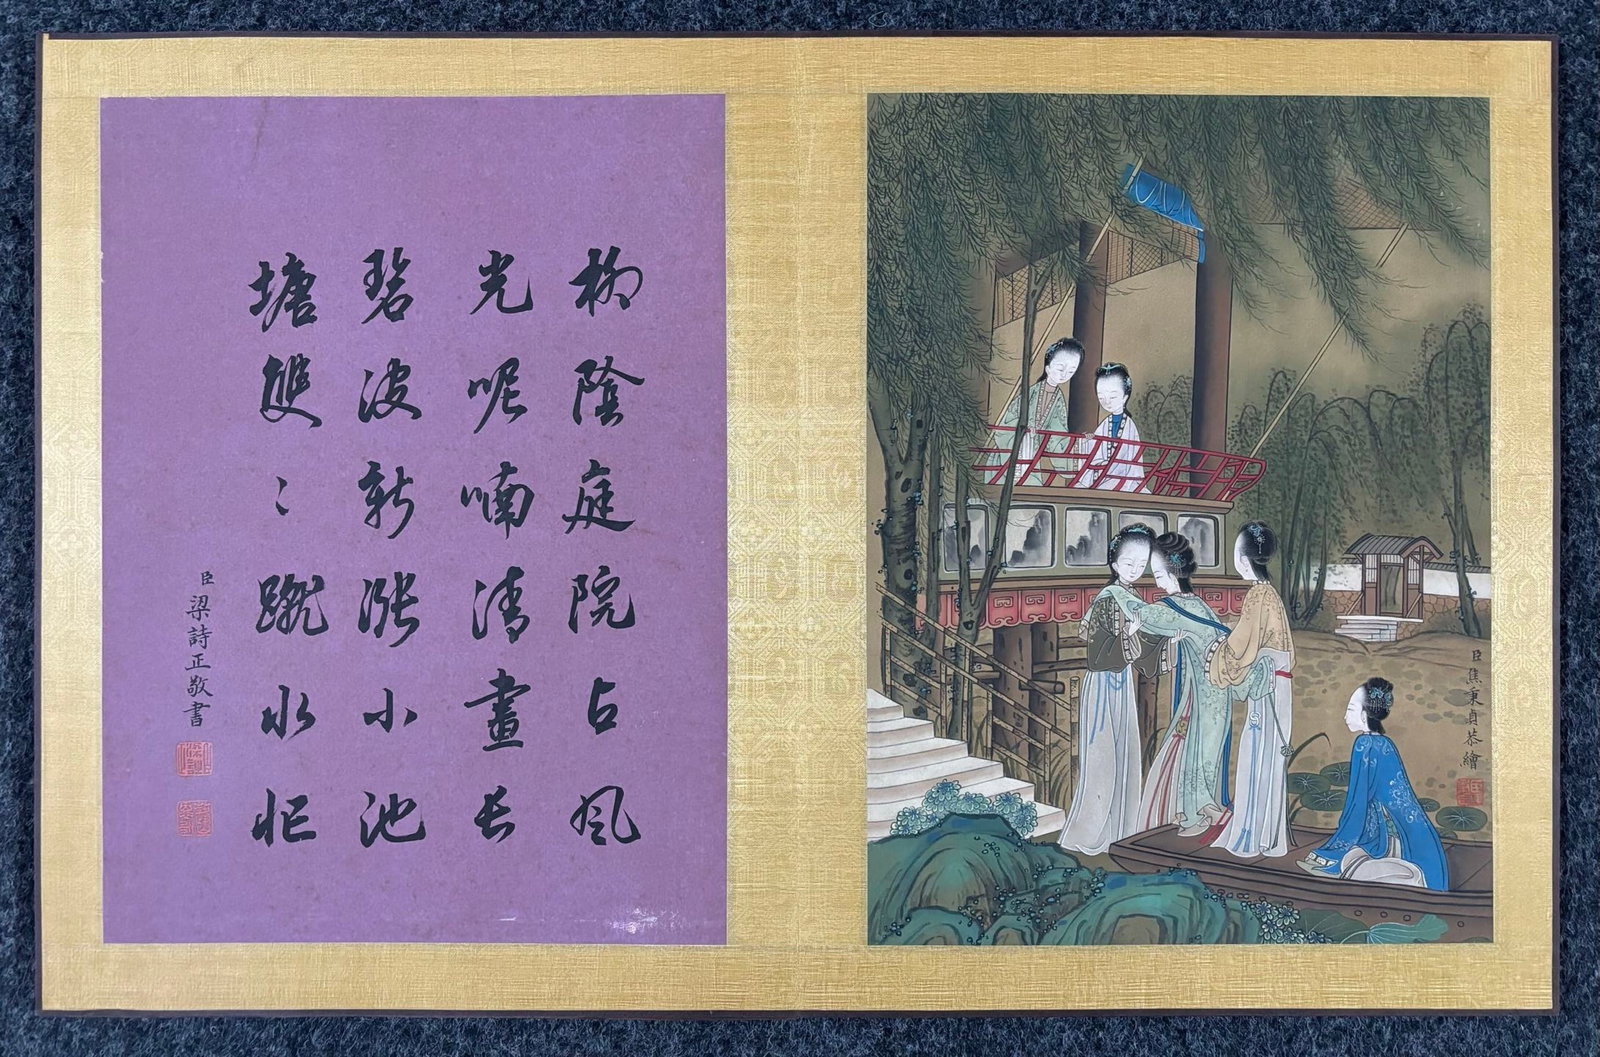 柳陰庭院占風
光呢喃清晝長
碧波新漲小池
塘雙〻蹴水忙
臣梁詩正敬書
臣焦秉貞恭繪